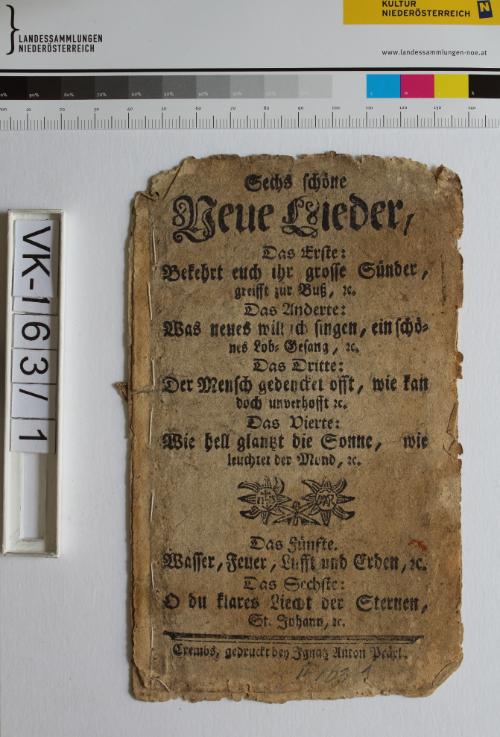 LANDESSAMMLUNGEN
NIEDERÖSTERREICH
KULTUR
NIEDERÖSTERREICH
www.landessammlungen-noe.at
VK-163/1
Sechs schöne
Neue Lieder,
Das Erste:
Bekehrt euch ihr grosse Sünder,
greifft zur Buß, ꝛc.
Das Anderte:
Was neues will ich singen, ein schö-
nes Lob-Gesang, ꝛc.
Das Dritte:
Der Mensch gedencket offt, wie kan
doch unverhofft ꝛc.
Das Vierte:
Wie hell glantzt die Sonne, wie
leuchtet der Mond, ꝛc.
Das Fünfte.
Wasser, Feuer, Lufft und Erden, ꝛc.
Das Sechste:
O du klares Liecht der Sternen,
St. Johann, ꝛc.
Crembs, gedruckt bey Ignatz Anton Präxl.